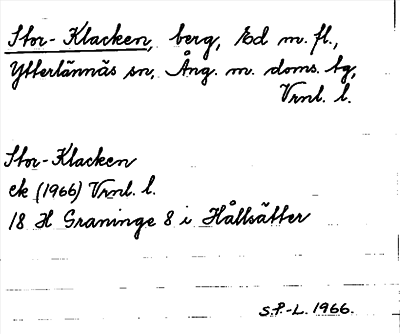 Stor-Klacken, berg, Ed m. fl.,
Ytterlännäs sn, Ång. m. doms. tg,
Vrnl. l.
Stor-Klacken
ek (1966) Vrnl. l.
18 H Graninge 8 i Hållsätter
S.P.-L. 1966.